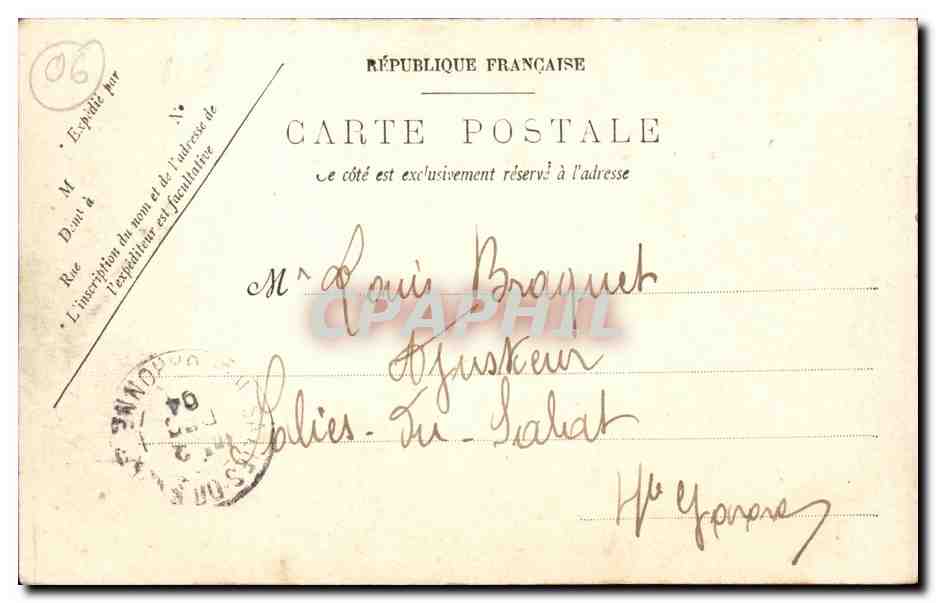 06
RÉPUBLIQUE FRANÇAISE
CARTE POSTALE
Ce côté est exclusivement réservé à l'adresse
Expédié par
M
Demt à
Rue N°
L'inscription du nom et de l'adresse de
l'expéditeur est facultative
M^r Louis Braquet
CPAPHIL
Ajusteur
Salies-Du-Salat
H^te Garonne
04